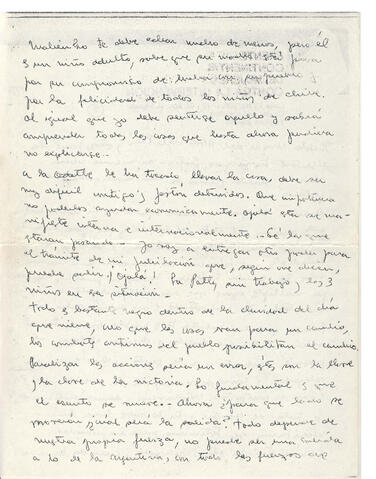 Malienho te debe echar mucho de menos, pero él
es un niño adulto, sabe que su madre está presa
por su compromiso de luchar con su pueblo
por la felicidad de todos los niños de Chile.
Al igual que yo debe sentirse orgullo y sabrá
comprender todas las cosas que hasta ahora pudiera
no explicarse.-
A la le ha tocado llevar la casa, debe ser
muy difícil contigo y detenidos. Que impotencia
no poderlos ayudar económicamente, ojalá ésta se ma-
nifieste interna e internacionalmente.- Sé lo que
estarán pasando.- Yo voy a entregar otro poder para
el trámite de mi jubilación que, según me dicen,
puede salir. ¡Ojalá! La Patty sin trabajo y los 3
niños en esa situación.
Todo es bastante negro dentro de la claridad del día
que viene, creo que las cosas van para un cambio,
los combates continuos del pueblo posibilitan el cambio.
Paralizar las acciones sería un error, éstas son la llave
y la clave de la victoria. Lo fundamental es que
el asunto se mueve.- Ahora ¿para que lado se
moverá y cuál será la salida? Todo depende de
nuestra propia fuerza, no puede ser una salida
a lo de la Argentina, con todo las fuerzas que